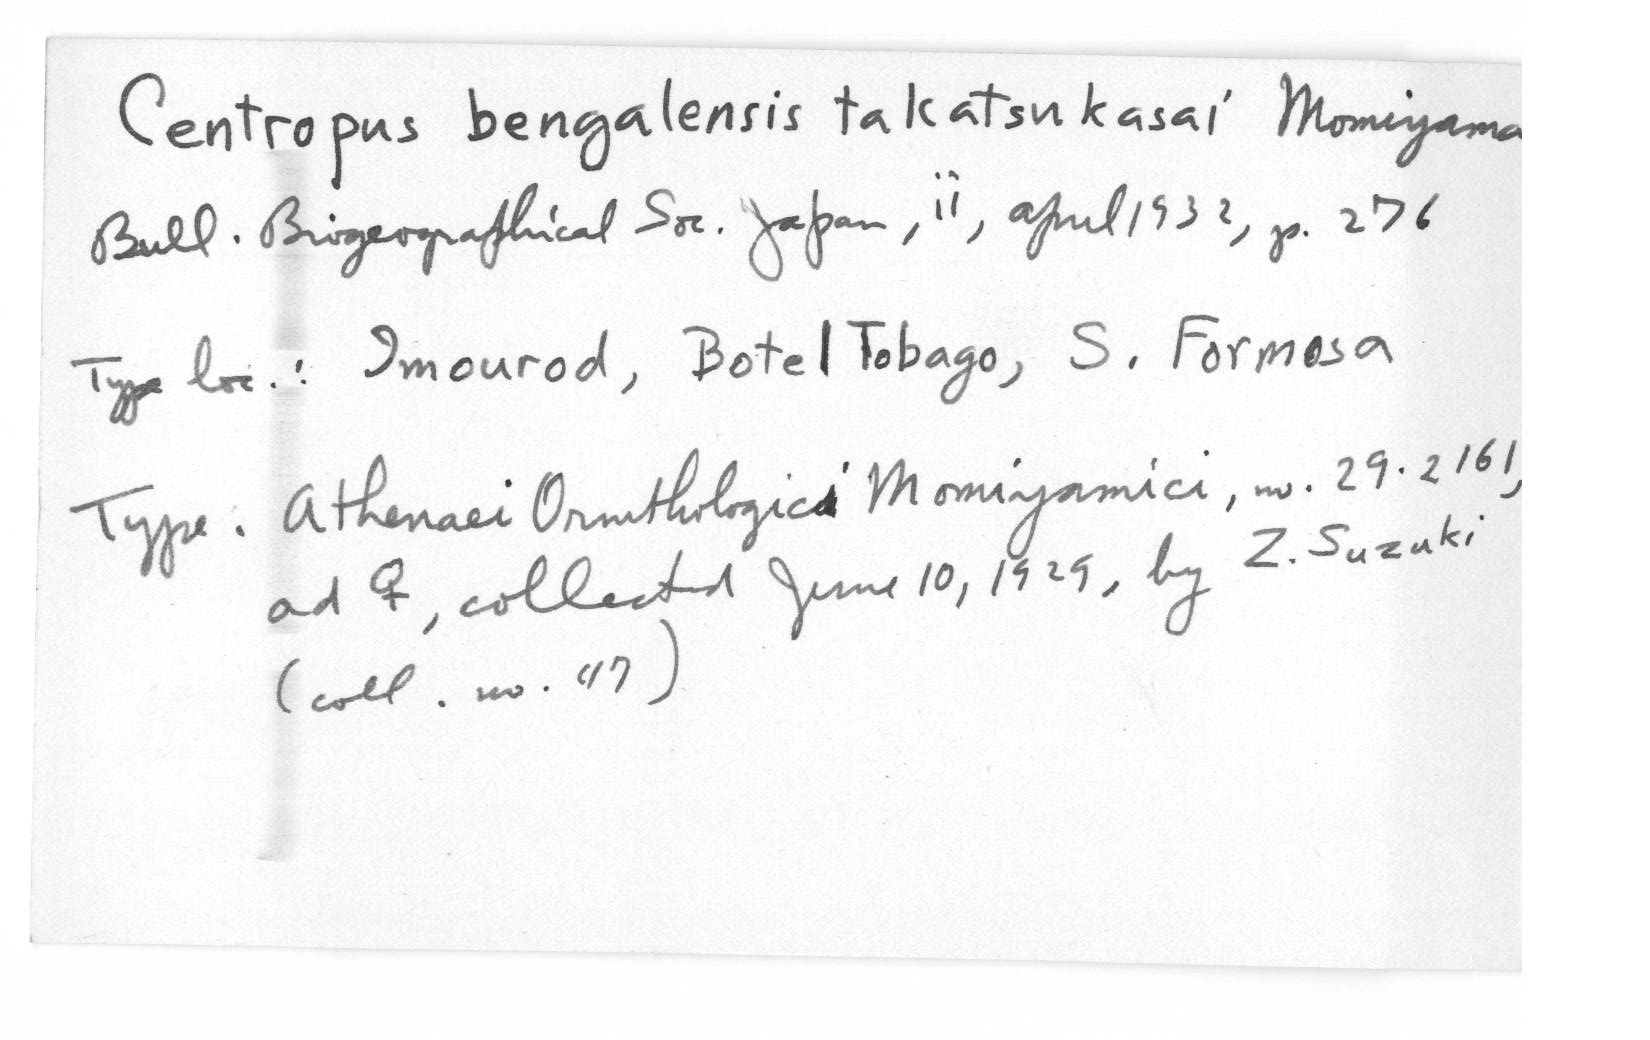 Centropus bengalensis takatsukasai Momiyama
Bull. Biogeographical Soc. Japan, ii, April 1932, p. 276
Type loc.: Imourod, Botel Tobago, S. Formosa
Type. Athenaei Ornithologici Momiyamici, no. 29.2161,
ad ♀, collected June 10, 1929, by Z. Suzuki
(coll. no. 47)